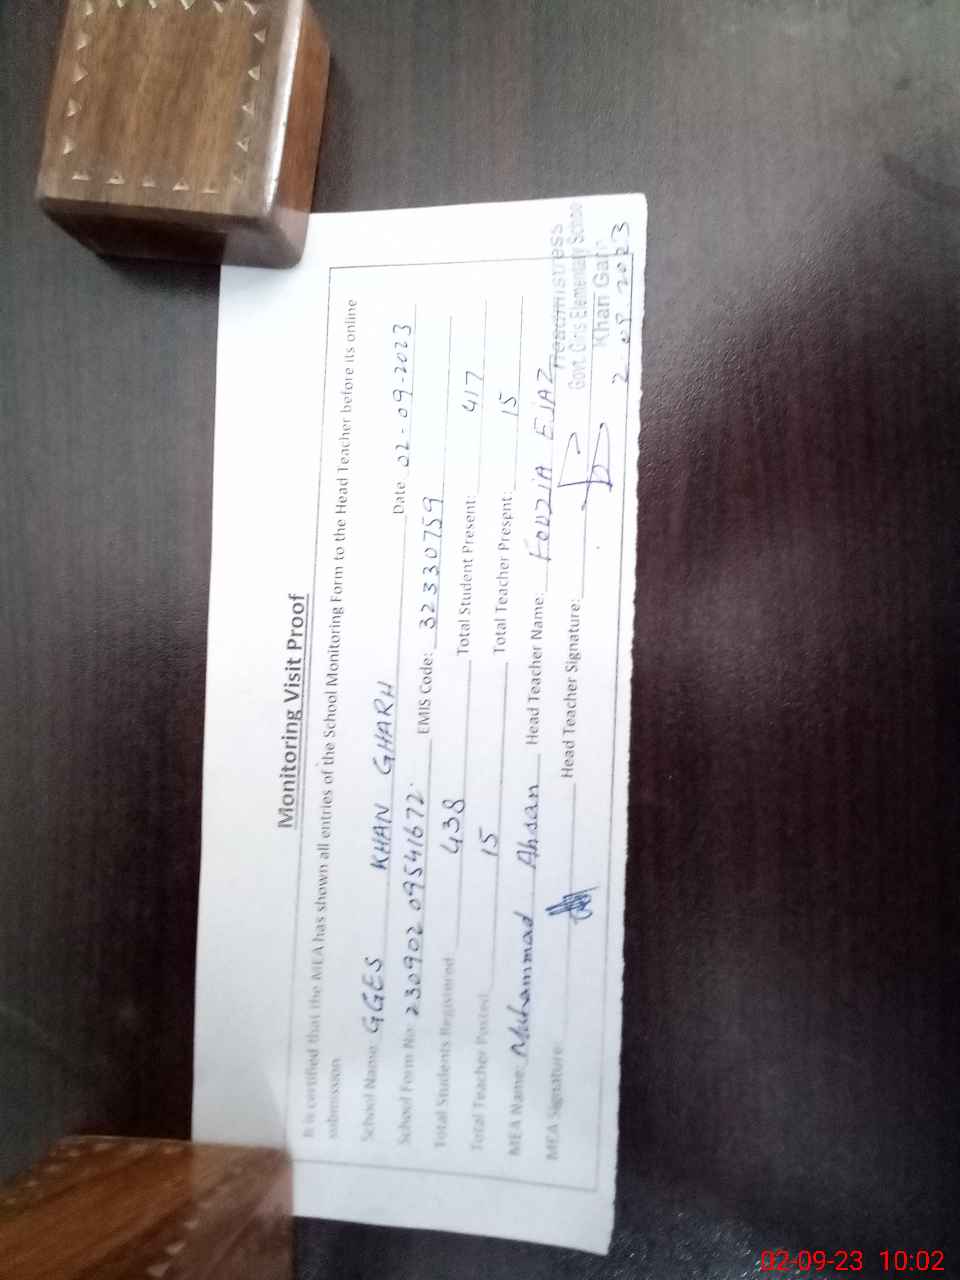 Monitoring Visit Proof
It is certified that the MEA has shown all entries of the School Monitoring Form to the Head Teacher before its online
submission
School Name: GGES KHAN GHARH Date 02-09-2023
School Form No: 230902 09541672. EMIS Code: 32330759
Total Students Registered: 438 Total Student Present: 417
Total Teacher Posted: 15 Total Teacher Present: 15
MEA Name: Muhammad Ahsan Head Teacher Name: FOUZIA EJAZ
MEA Signature: Head Teacher Signature:
Headmistress
Govt. Girls Elementary School
Khan Garh
2-09-2023
02-09-23 10:02